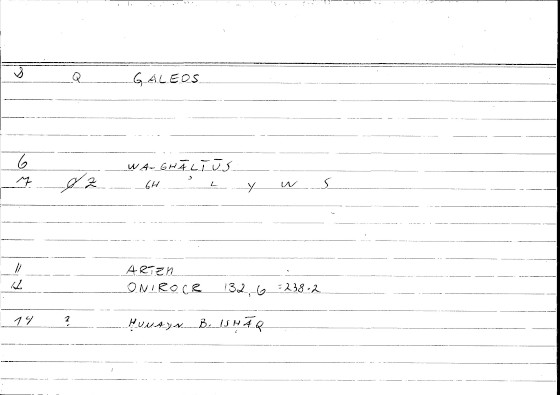 3 Q GALEOS
6 WA-GHĀLĪŪS
7 Ø2 GH ʾ L Y W S
11 ARTEM
12 ONIROCR 132,6 =238.2
14 ? ḤUNAYN B. ISḤĀQ